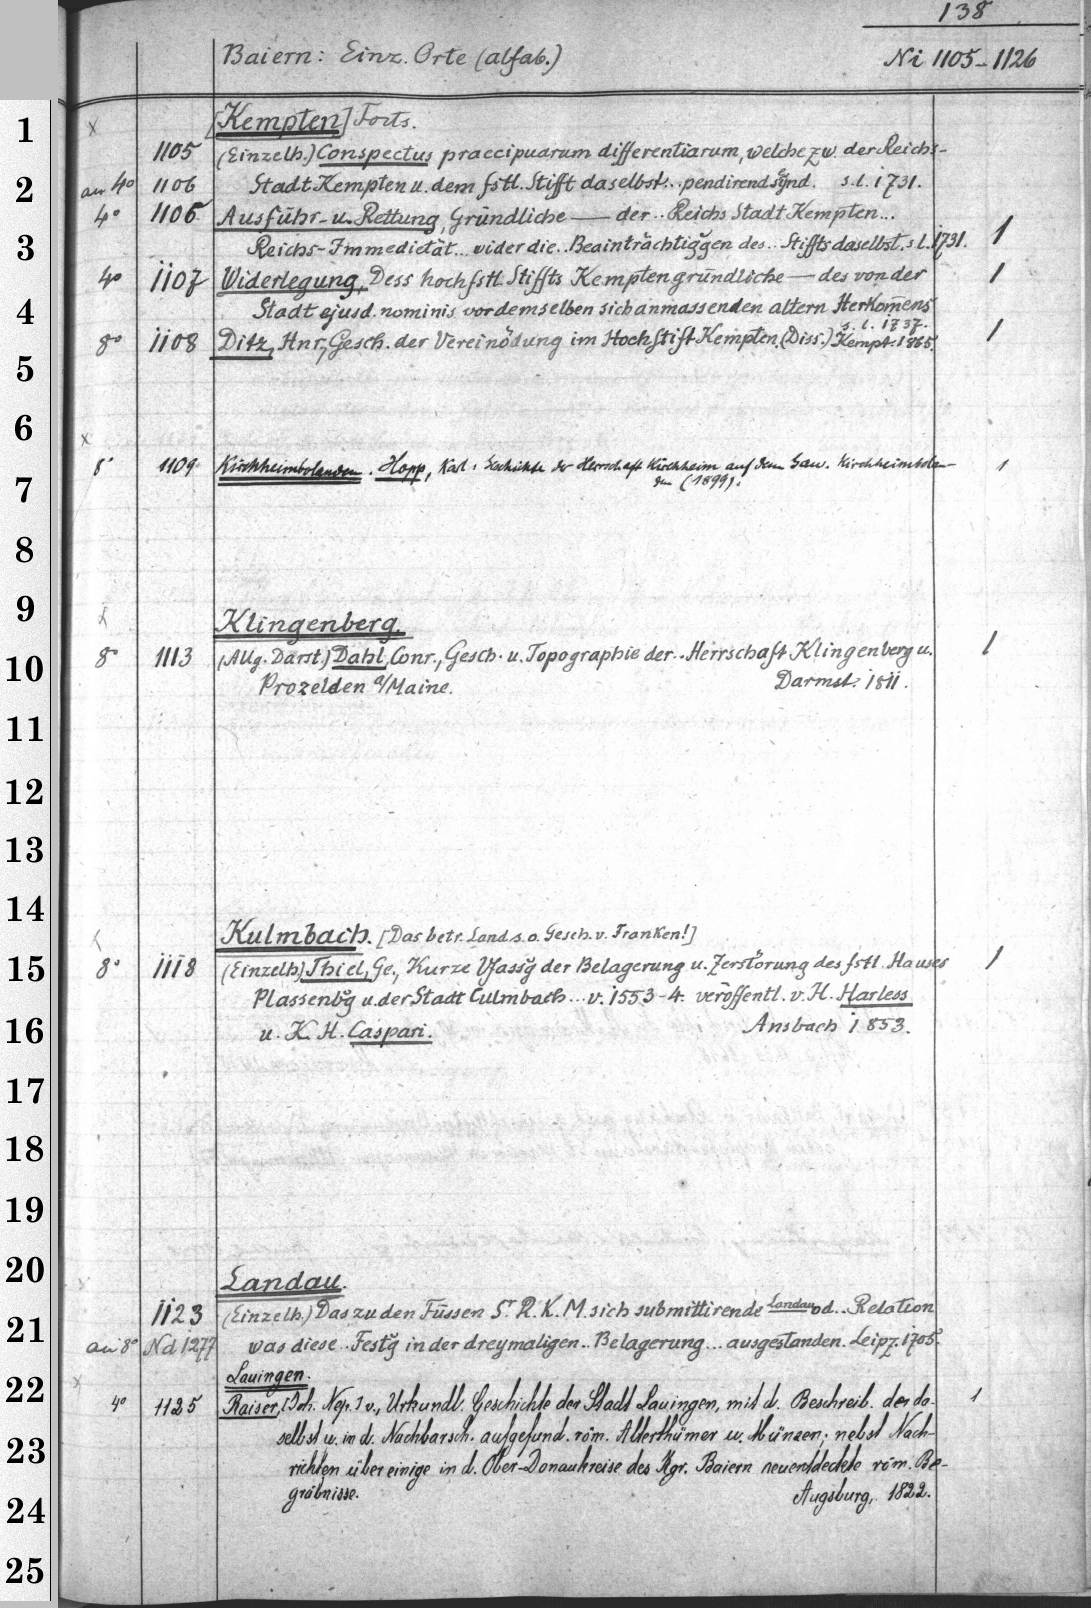 138
Baiern: Einz. Orte (alfab.) Ni 1105-1126
[Kempten] Forts.
1105 (Einzelh.) Conspectus praecipuarum differentiarum, welche zw. der Reichs-
an 4° 1106 Stadt Kempten u. dem fstl. Stifft daselbst... pendirend synd. s.l. 1731.
4° 1106 Ausführ- u. Rettung, Gründliche — der .. Reichs Stadt Kempten...
Reichs-Immedietät .. wider die .. Beainträchtiggen des .. Stiffts daselbst. s.l. 1731. 1
4° 1107 Widerlegung, Dess hochfstl Stiffts Kempten gründliche — des von der 1
Stadt ejusd. nominis vor demselben sich anmassenden altern Herkomens
s. l. 1737.
8° 1108 Ditz, Hnr., Gesch. der Vereinödung im Hochstift Kempten. (Diss.) Kempt. 1865. 1
8° 1109 Kirchheimbolanden. Hopp, Karl: Geschichte der Herrschaft Kirchheim auf dem Gau. Kirchheimbolan- 1
den (1899).
Klingenberg.
8° 1113 (Allg. Darst.) Dahl, Conr., Gesch. u. Topographie der .. Herrschaft Klingenberg u. 1
Prozelden a/Maine. Darmst. 1811.
Kulmbach. [Das betr. Land s. o. Gesch. v. Franken!]
8° 1118 (Einzelh.) Thiel, Ge., Kurze Vfassg der Belagerung u. Zerstörung des fstl. Hauses 1
Plassenbg u. der Stadt Culmbach ... v. 1553-4. veröffentl. v. H. Harless
u. K. H. Caspari. Ansbach 1853.
Landau.
1123 (Einzelh.) Das zu den Füssen Sr. R. K. M. sich submittirende Landau od .. Relation
an 8° Nd 1277 was diese .. Festg in der dreymaligen .. Belagerung ... ausgestanden. Leipz. 1705.
Lauingen.
4° 1125 Raiser, [Joh. Nep.] v., Urkundl. Geschichte der Stadt Lauingen, mit d. Beschreib. der da- 1
selbst u. in d. Nachbarsch. aufgefund. röm. Alterthümer u. Münzen; nebst Nach-
richten über einige in d. Ober-Donaukreise des Kgr. Baiern neuentdeckte röm. Be-
gräbnisse. Augsburg, 1822.